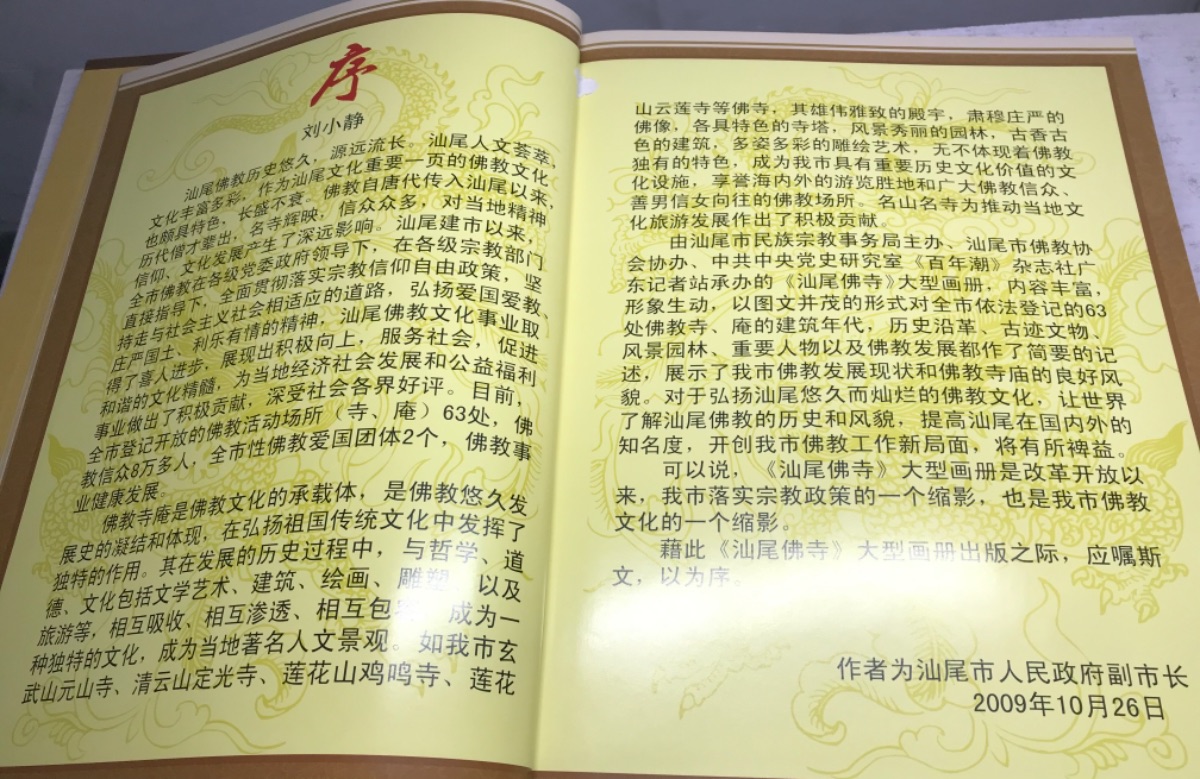 序
刘小静
汕尾佛教历史悠久，源远流长。汕尾人文荟萃，
文化丰富多彩，作为汕尾文化重要一页的佛教文化
也颇具特色，长盛不衰。佛教自唐代传入汕尾以来，
历代偕才辈出，名寺辉映，信众众多，对当地精神
信仰、文化发展产生了深远影响。汕尾建市以来，
全市佛教在各级党委政府领导下，在各级宗教部门
直接指导下，全面贯彻落实宗教信仰自由政策，坚
持走与社会主义社会相适应的道路，弘扬爱国爱教、
庄严国土、利乐有情的精神，汕尾佛教文化事业取
得了喜人进步，展现出积极向上，服务社会，促进
和谐的文化精髓，为当地经济社会发展和公益福利
事业做出了积极贡献，深受社会各界好评。目前，
全市登记开放的佛教活动场所（寺、庵）63处，佛
教信众8万多人，全市性佛教爱国团体2个，佛教事
业健康发展。
佛教寺庵是佛教文化的承载体，是佛教悠久发
展史的凝结和体现，在弘扬祖国传统文化中发挥了
独特的作用。其在发展的历史过程中，与哲学、道
德、文化包括文学艺术、建筑、绘画、雕塑，以及
旅游等，相互吸收、相互渗透、相互包容，成为一
种独特的文化，成为当地著名人文景观。如我市玄
武山元山寺、清云山定光寺、莲花山鸡鸣寺、莲花
山云莲寺等佛寺，其雄伟雅致的殿宇，肃穆庄严的
佛像，各具特色的寺塔，风景秀丽的园林，古香古
色的建筑，多姿多彩的雕绘艺术，无不体现着佛教
独有的特色，成为我市具有重要历史文化价值的文
化设施，享誉海内外的游览胜地和广大佛教信众、
善男信女向往的佛教场所。名山名寺为推动当地文
化旅游发展作出了积极贡献。
由汕尾市民族宗教事务局主办、汕尾市佛教协
会协办、中共中央党史研究室《百年潮》杂志社广
东记者站承办的《汕尾佛寺》大型画册，内容丰富，
形象生动，以图文并茂的形式对全市依法登记的63
处佛教寺、庵的建筑年代，历史沿革、古迹文物、
风景园林、重要人物以及佛教发展都作了简要的记
述，展示了我市佛教发展现状和佛教寺庙的良好风
貌。对于弘扬汕尾悠久而灿烂的佛教文化，让世界
了解汕尾佛教的历史和风貌，提高汕尾在国内外的
知名度，开创我市佛教工作新局面，将有所裨益。
可以说，《汕尾佛寺》大型画册是改革开放以
来，我市落实宗教政策的一个缩影，也是我市佛教
文化的一个缩影。
藉此《汕尾佛寺》大型画册出版之际，应嘱斯
文，以为序。
作者为汕尾市人民政府副市长
2009年10月26日